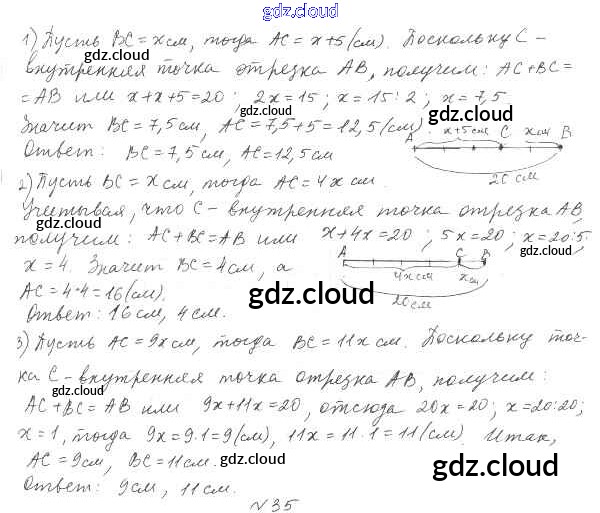 gdz.cloud
1) Пусть BC = x см, тогда AC = x+5 (см). Поскольку C -
gdz.cloud gdz.cloud
внутренняя точка отрезка AB, получим: AC+BC =
= AB или x+x+5=20; 2x=15; x=15:2; x=7,5.
gdz.cloud gdz.cloud
Значит BC=7,5 см, AC=7,5+5=12,5 (см)
Ответ: BC=7,5 см, AC=12,5 см
A x+5 см C x см B
20 см
2) Пусть BC = x см, тогда AC = 4x см.
gdz.cloud
Учитывая, что C - внутренняя точка отрезка AB,
получим: AC+BC=AB или x+4x=20; 5x=20; x=20:5;
gdz.cloud gdz.cloud
x=4. Значит BC=4 см, а
AC=4·4=16 (см).
Ответ: 16 см, 4 см.
A 4x см C x см B
20 см
gdz.cloud
3) Пусть AC=9x см, тогда BC=11x см. Поскольку точ-
gdz.cloud
ка C - внутренняя точка отрезка AB, получим:
gdz.cloud
AC+BC=AB или 9x+11x=20, отсюда 20x=20; x=20:20;
gdz.cloud
x=1, тогда 9x=9·1=9 (см), 11x=11·1=11 (см). Итак,
AC=9 см, BC=11 см.
gdz.cloud gdz.cloud
Ответ: 9 см, 11 см.
№35